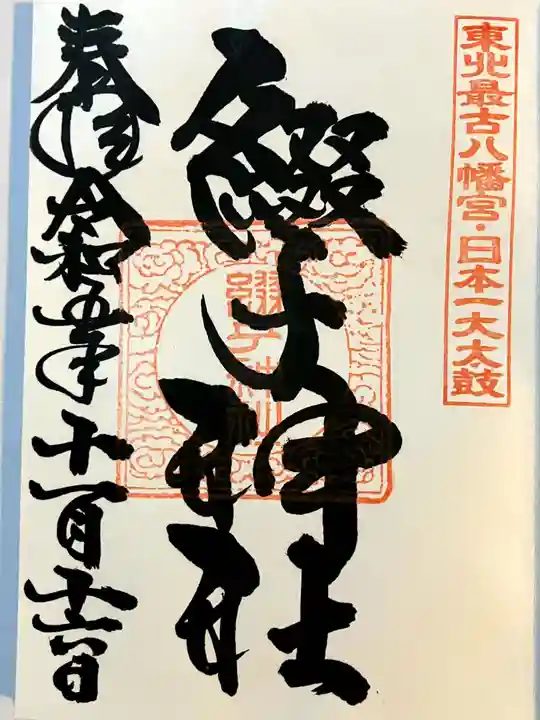 東北最古八幡宮・日本一大太鼓
綴子神社
綴子神社
奉拝 令和五年十一月十六日